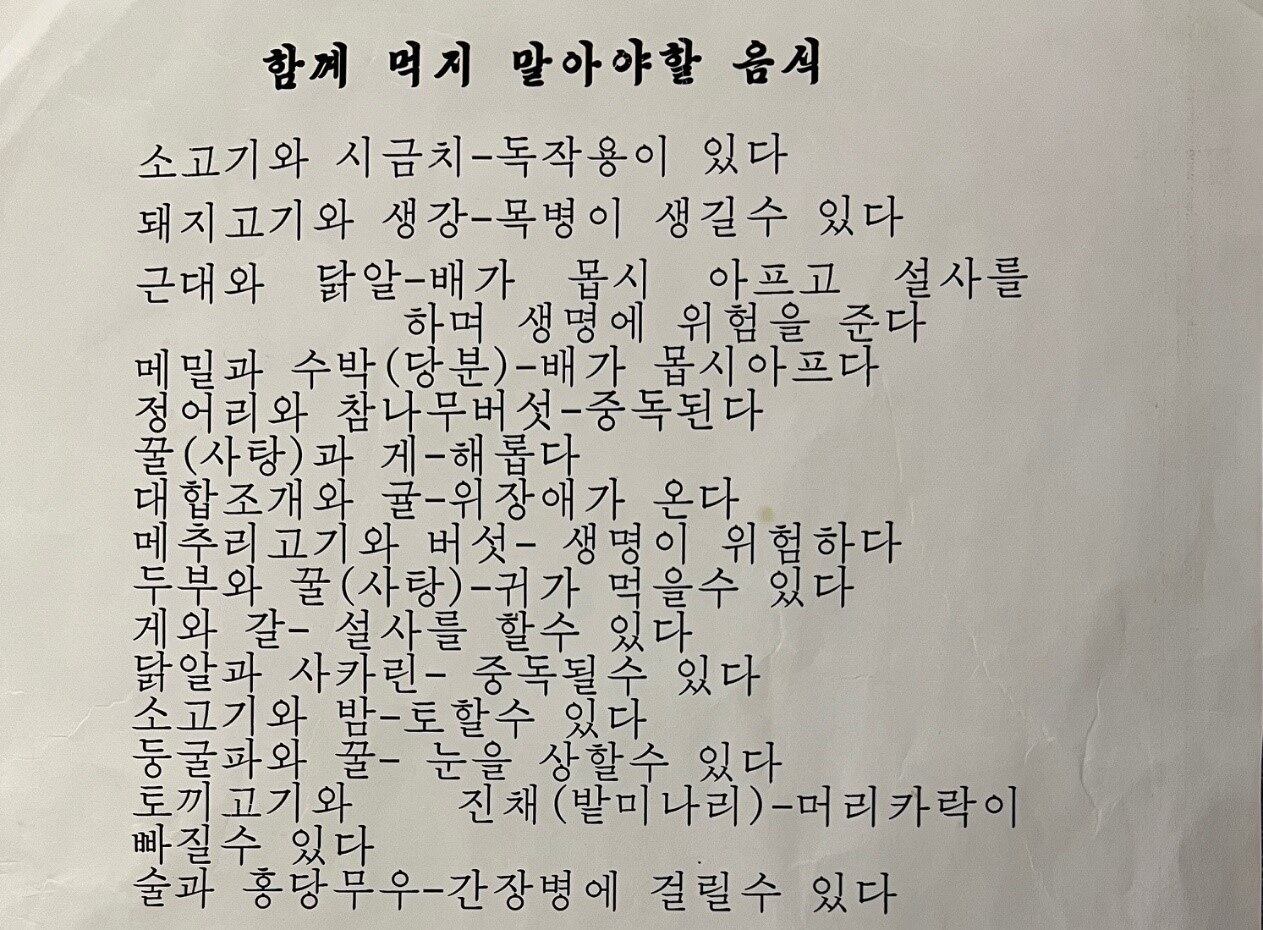 함께 먹지 말아야할 음식
소고기와 시금치-독작용이 있다
돼지고기와 생강-목병이 생길수 있다
근대와 닭알-배가 몹시 아프고 설사를
하며 생명에 위험을 준다
메밀과 수박(당분)-배가 몹시아프다
정어리와 참나무버섯-중독된다
꿀(사탕)과 게-해롭다
대합조개와 귤-위장애가 온다
메추리고기와 버섯- 생명이 위험하다
두부와 꿀(사탕)-귀가 먹을수 있다
게와 갈- 설사를 할수 있다
닭알과 사카린- 중독될수 있다
소고기와 밤-토할수 있다
둥굴파와 꿀- 눈을 상할수 있다
토끼고기와 진채(밭미나리)-머리카락이
빠질수 있다
술과 홍당무우-간장병에 걸릴수 있다